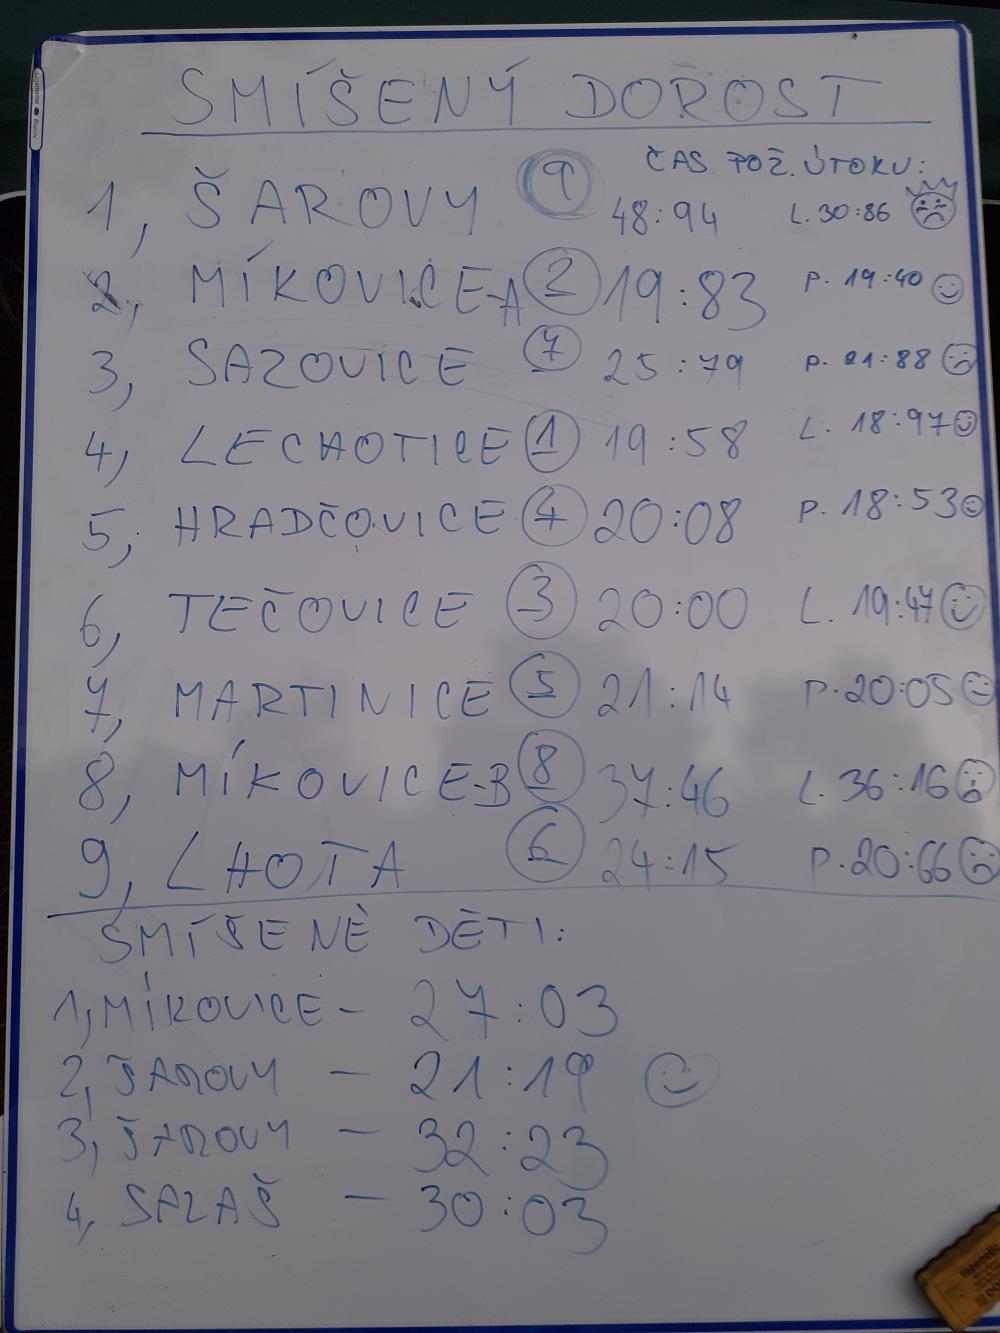 SMÍŠENÝ DOROST
ČAS POŽ. ÚTOKU:
1, ŠAROVY 9 48:94 L. 30:86
2, MÍKOVICE-A 2 19:83 P. 19:40
3, SAZOVICE 7 25:79 P. 21:88
4, LECHOTICE 1 19:58 L. 18:97
5, HRADČOVICE 4 20:08 P. 18:53
6, TEČOVICE 3 20:00 L. 19:47
7, MARTINICE 5 21:14 P. 20:05
8, MÍKOVICE-B 8 37:46 L. 36:16
9, LHOTA 6 24:15 P. 20:66
SMÍŠENÉ DĚTI:
1, MÍKOVICE - 27:03
2, ŠAROVY - 21:19
3, ŠAROVY - 32:23
4, SALAŠ - 30:03